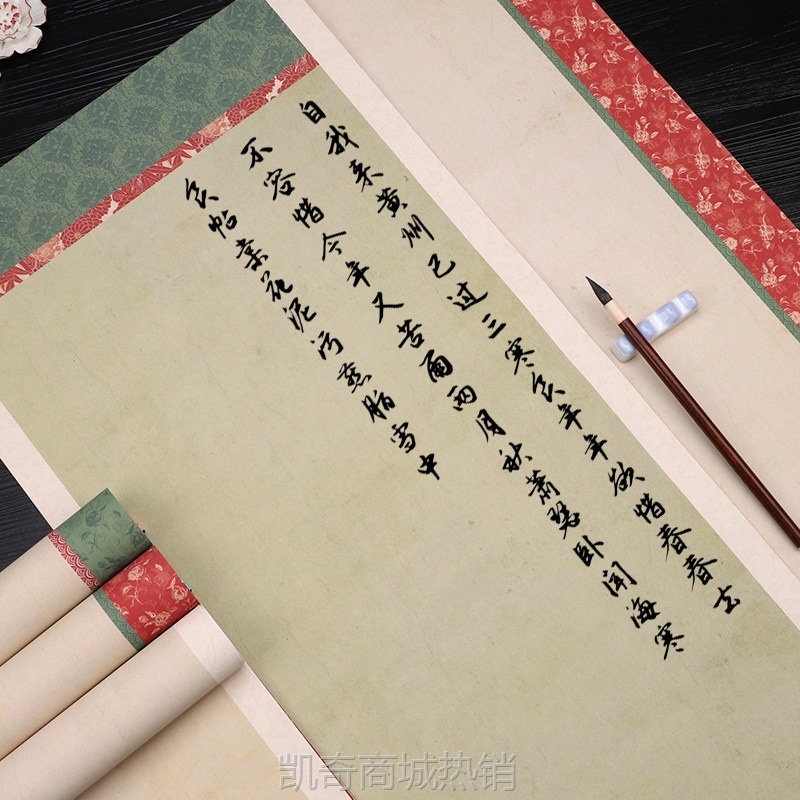 自我来黄州已过三寒食年年欲惜春春去
不容惜今年又苦雨两月秋萧瑟卧闻海寒
食帖棠花泥污燕脂雪中
凯奇商城热销